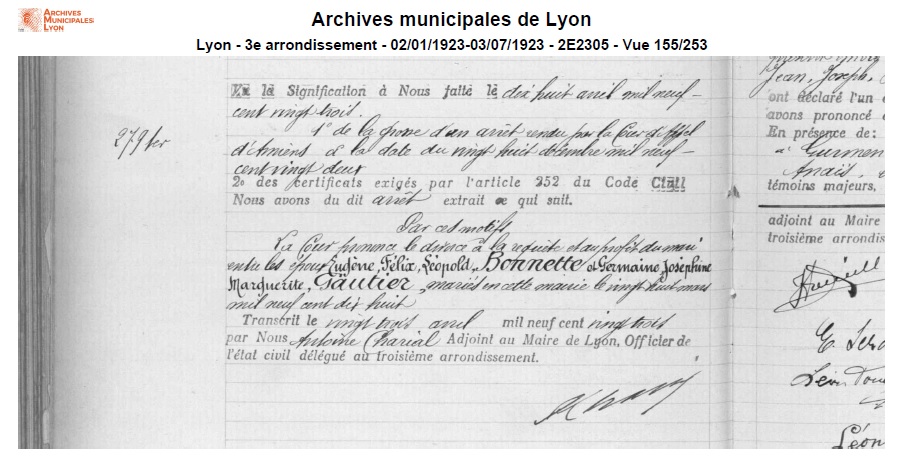 ARCHIVES
MUNICIPALES
LYON
Archives municipales de Lyon
Lyon - 3e arrondissement - 02/01/1923-03/07/1923 - 2E2305 - Vue 155/253
279 ter
Vu la Signification à Nous faite le dix huit avril mil neuf-
cent vingt trois.
1° de la grosse d'un arrêt rendu par la Cour d'Appel
d'Amiens à la date du vingt huit décembre mil neuf-
cent vingt deux
2o des certificats exigés par l'article 252 du Code Civil
Nous avons du dit arrêt extrait ce qui suit.
Par ces motifs
La Cour prononce le divorce à la requête et au profit du mari
entre les époux Eugène, Félix, Léopold, Bonnette et Germaine Joséphine
Marguerite, Gautier, mariés en cette mairie le vingt huit mars
mil neuf cent dix huit
Transcrit le vingt trois avril mil neuf cent vingt trois
par Nous Antoine Charial Adjoint au Maire de Lyon, Officier de
l'état civil délégué au troisième arrondissement.
Jean, Joseph,
ont déclaré l'un
avons prononcé
En présence de:
à Germen
Anaïs,
témoins majeurs,
adjoint au Maire
troisième arrondiss